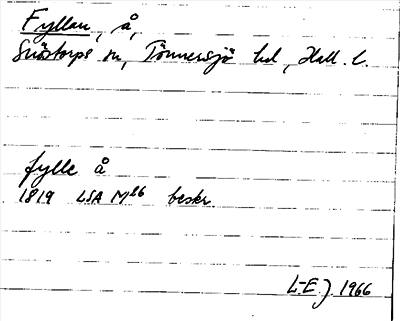 Fyllan, å,
Snöstorps sn, Tönnersjö hd, Hall. l.
fylle å
1819 LSA M26 beskr
L-E J 1966